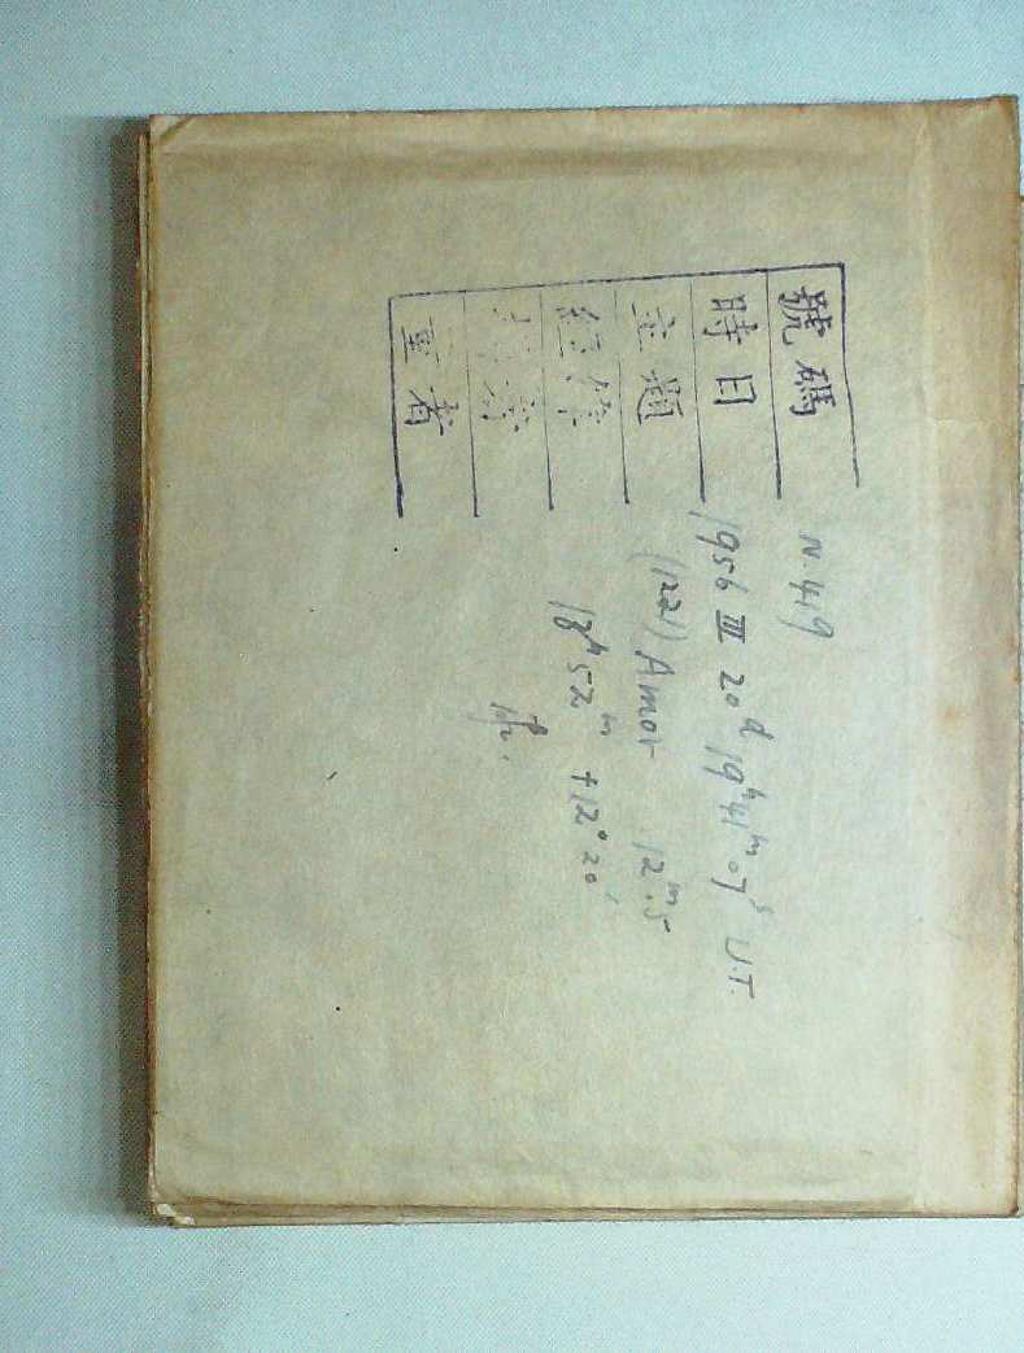 號碼 N. 419
時日 1956 III 20d 19h 41m 07s U.T.
主題 (1221) Amor 12m.5
經緯 18h 52m +12° 20'
著者